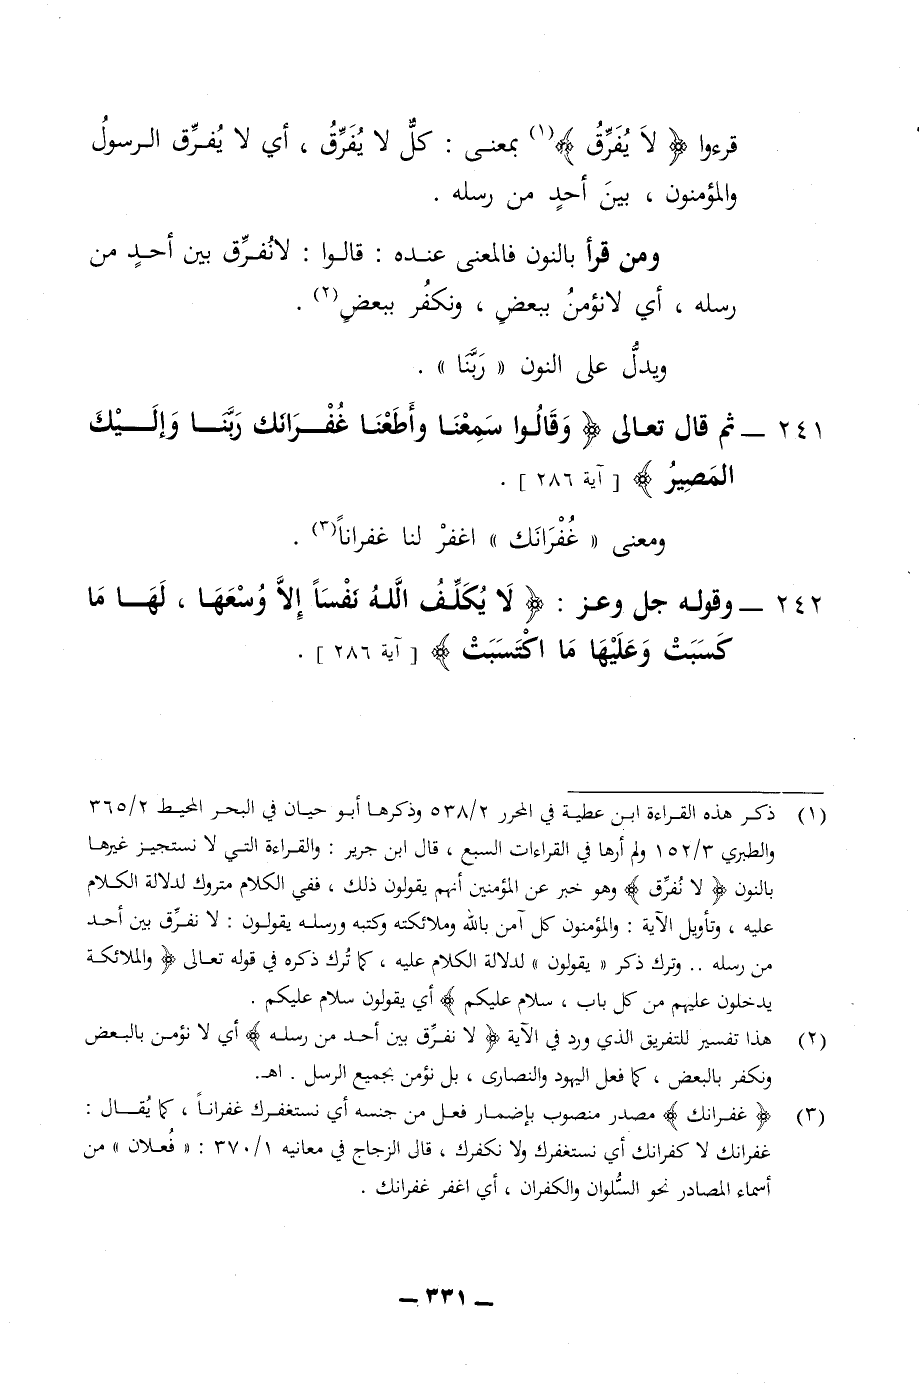 قرءوا ﴿ لاَ يُفَرِّقُ ﴾(١) بمعنى : كلٌّ لا يُفَرِّقُ ، أي لا يُفرِّق الرسولُ
والمؤمنون ، بينَ أحدٍ من رسله .
ومن قرأ بالنون فالمعنى عنده : قالوا : لانُفرِّق بين أحدٍ من
رسله ، أي لانؤمنُ ببعضٍ ، ونكفُر ببعضٍ(٢) .
ويدلُّ على النون « رَبَّنَا » .
٢٤١ ــ ثم قال تعالى ﴿ وَقَالُوا سَمِعْنَا وأَطَعْنَا غُفْرَانَك رَبَّنَا وَإلَيْكَ
المَصِيرُ ﴾ [ آية ٢٨٦ ] .
ومعنى « غُفْرَانَك » اغفرْ لنا غفراناً(٣) .
٢٤٢ ــ وقوله جل وعز : ﴿ لَا يُكَلِّفُ اللَّهُ نَفْسَاً إلاَّ وُسْعَهَا ، لَهَا مَا
كَسَبَتْ وَعَلَيْهَا مَا اكْتَسَبَتْ ﴾ [ آية ٢٨٦ ] .
(١) ذكر هذه القراءة ابن عطية في المحرر ٥٣٨/٢ وذكرها أبو حيان في البحر المحيط ٣٦٥/٢
والطبري ١٥٢/٣ ولم أرها في القراءات السبع ، قال ابن جرير : والقراءة التي لا نستجيز غيرها
بالنون ﴿ لا نُفرِّق ﴾ وهو خبر عن المؤمنين أنهم يقولون ذلك ، ففي الكلام متروك لدلالة الكلام
عليه ، وتأويل الآية : والمؤمنون كل آمن بالله وملائكته وكتبه ورسله يقولون : لا نفرِّق بين أحد
من رسله .. وترك ذكر « يقولون » لدلالة الكلام عليه ، كما تُرك ذكره في قوله تعالى ﴿ والملائكة
يدخلون عليهم من كل باب ، سلام عليكم ﴾ أي يقولون سلام عليكم .
(٢) هذا تفسير للتفريق الذي ورد في الآية ﴿ لا نفرِّق بين أحد من رسله ﴾ أي لا نؤمن بالبعض
ونكفر بالبعض ، كما فعل اليهود والنصارى ، بل نؤمن بجميع الرسل . اهـ.
(٣) ﴿ غفرانك ﴾ مصدر منصوب بإضمار فعل من جنسه أي نستغفرك غفراناً ، كما يُقال :
غفرانك لا كفرانك أي نستغفرك ولا نكفرك ، قال الزجاج في معانيه ٣٧٠/١ : « فُعلان » من
أسماء المصادر نحو السُّلوان والكفران ، أي اغفر غفرانك .
ــ ٣٣١ ــ